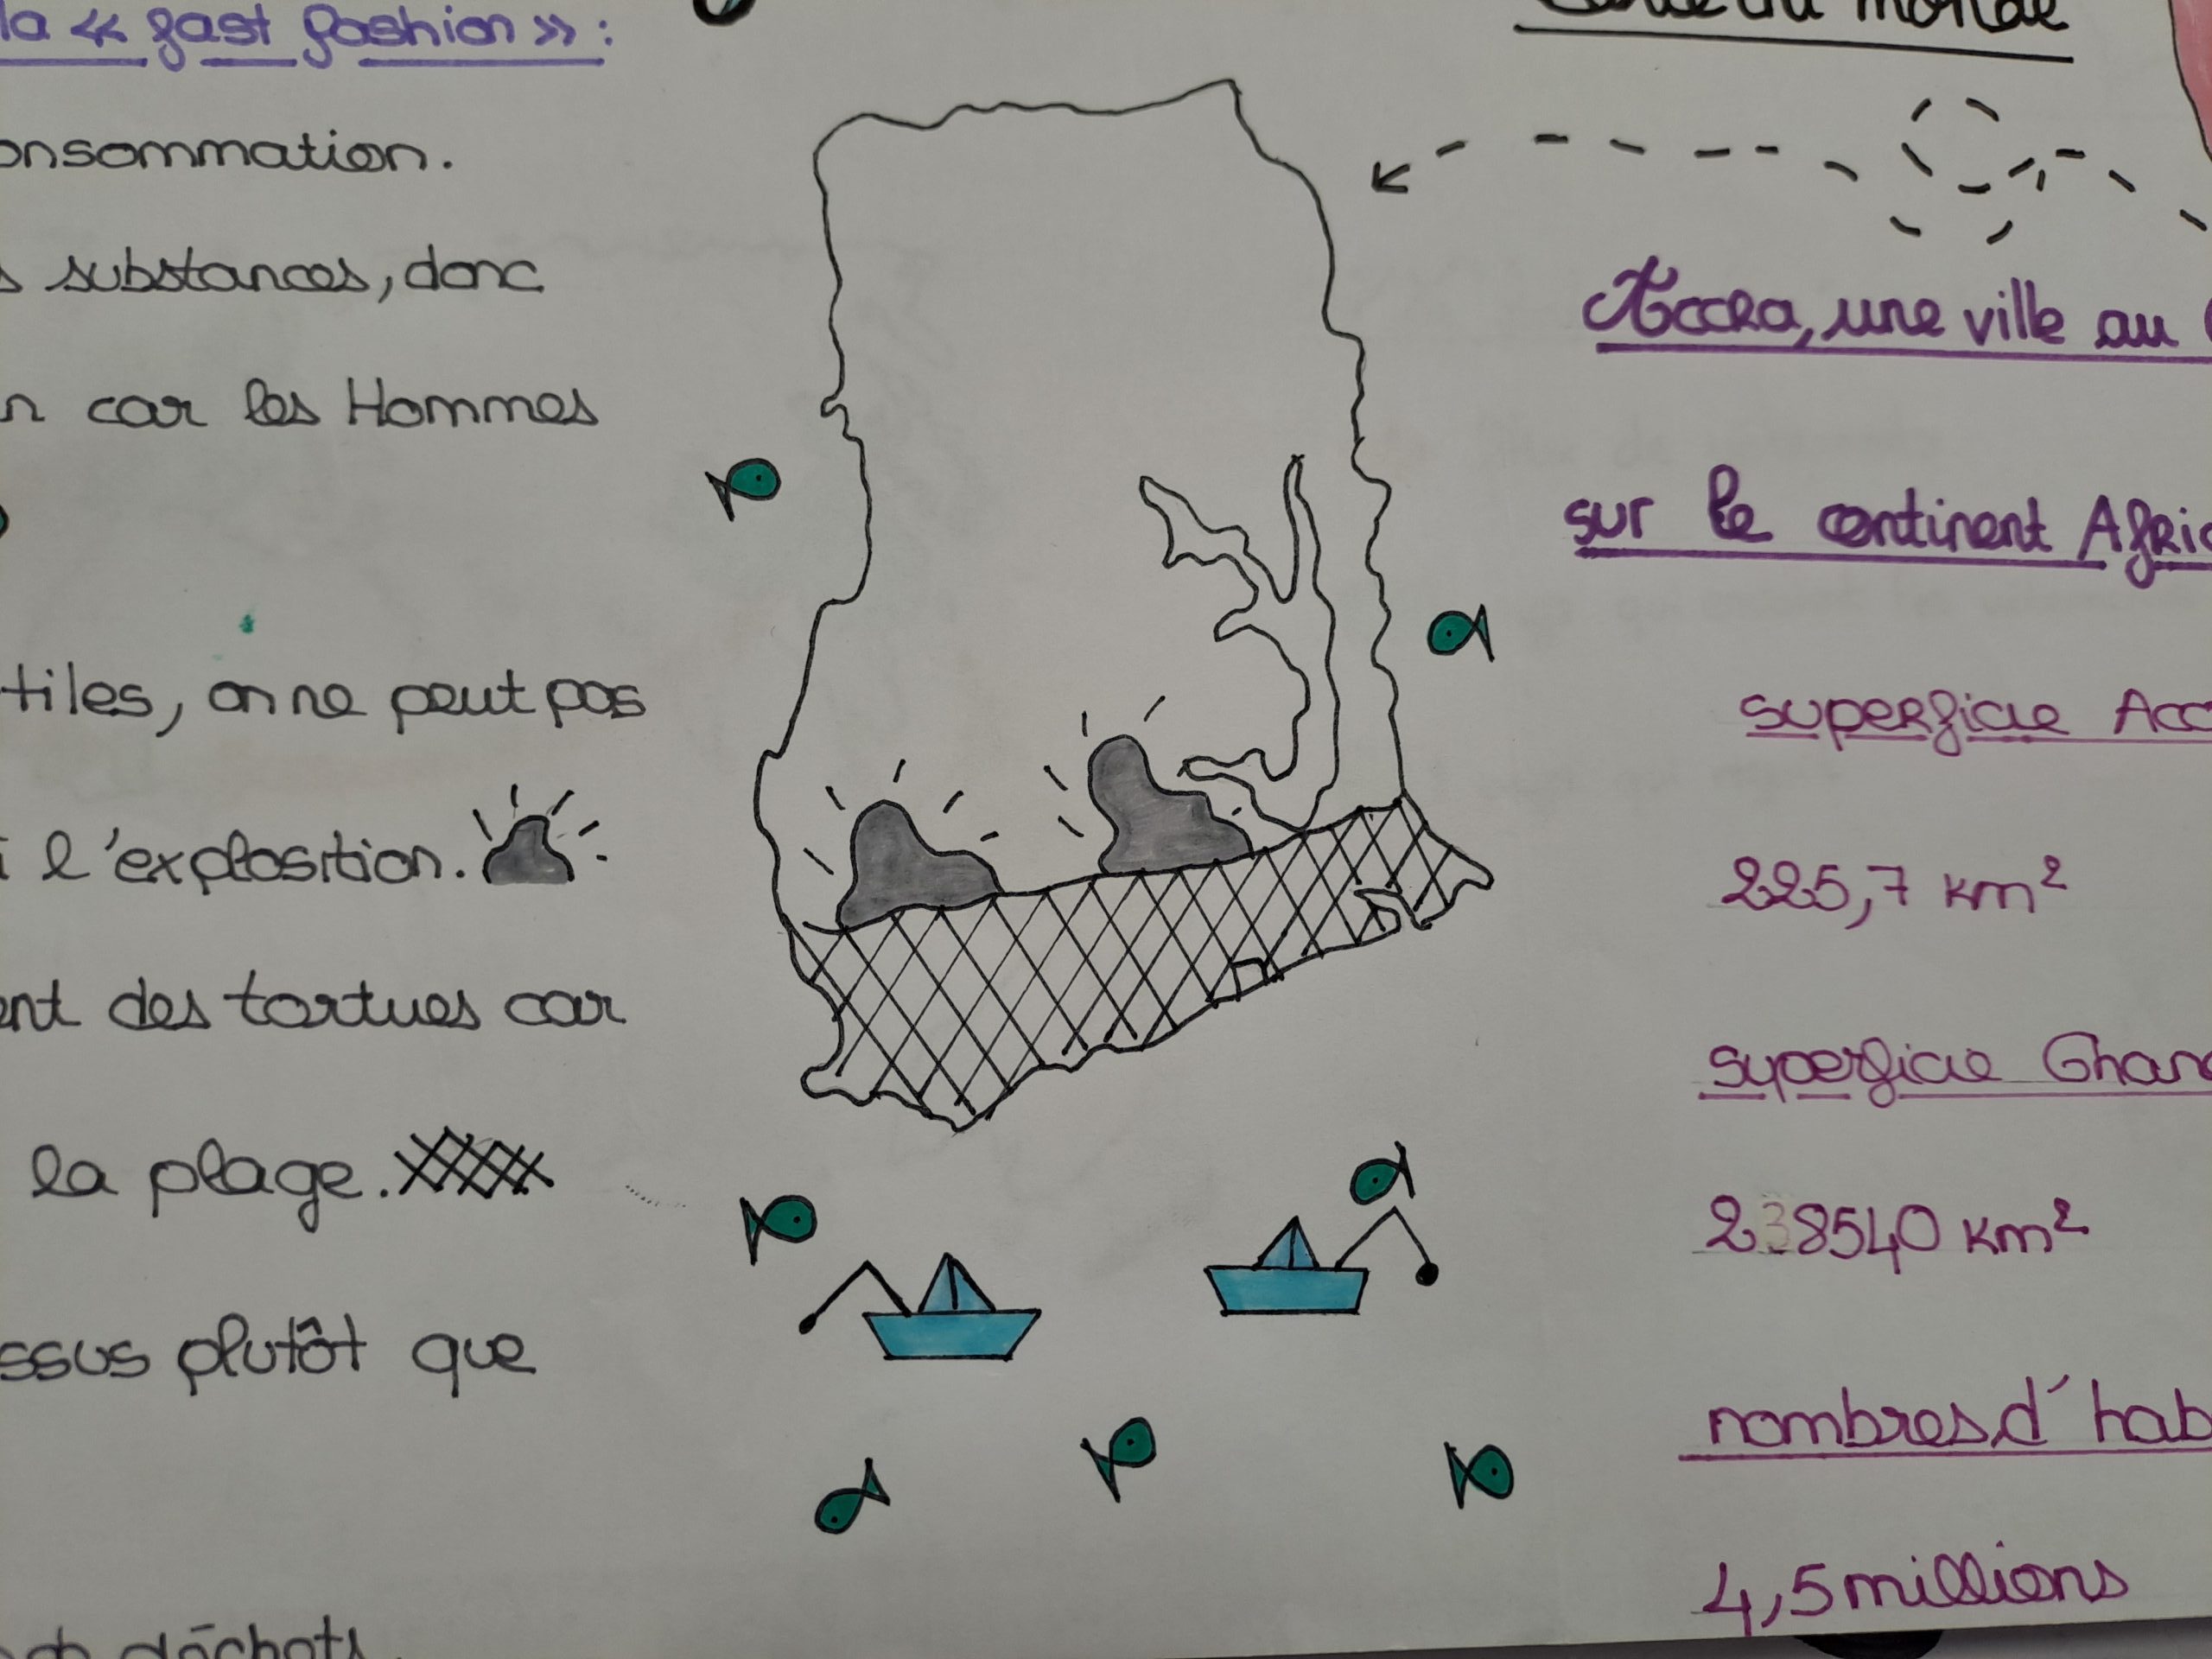 la « fast fashion » :
onsommation.
s substances, donc
n car les Hommes
tiles, on ne peut pas
i l'explosition.
ent des tortues car
la plage.
ssus plutôt que
déchets
du monde
Accra, une ville au
sur le continent Afric
superficie Acc
225,7 km²
superficie Ghan
238540 km²
nombres d'hab
4,5 millions